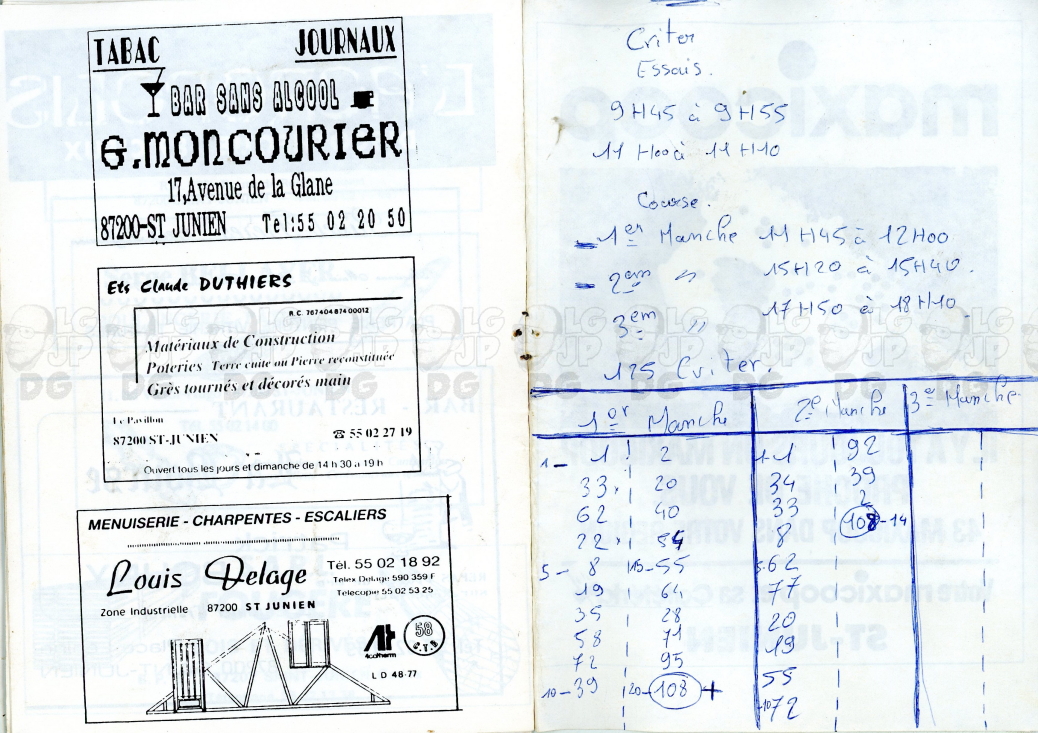 TABAC JOURNAUX
BAR SANS ALCOOL
G.MONCOURIER
17,Avenue de la Glane
87200-ST JUNIEN Tel:55 02 20 50
Ets Claude DUTHIERS
R.C. 767404874 00012
Matériaux de Construction
Poteries Terre cuite ou Pierre reconstituée
Grès tournés et décorés main
Le Pavillon
87200 ST-JUNIEN ☎ 55 02 27 19
Ouvert tous les jours et dimanche de 14 h 30 a 19 h
MENUISERIE - CHARPENTES - ESCALIERS
Louis Delage
Tél. 55 02 18 92
Telex Delage 590 359 F
Telecopie 55 02 53 25
Zone Industrielle 87200 ST JUNIEN
58
C.T.B
LD 48-77
Criter
Essais.
9H45 à 9H55
11H00 à 11H10
Course.
- 1er Manche 11H45 à 12H00
- 2em " 15H20 à 15H40.
3em " 17H50 à 18H10.
125 Criter.
1er Manche 2e Manche 3e Manche
1- 1 2 1-1 92
33 20 34 39
62 40 33 2
22 54 108-14
5- 8 15-55 8
19 64 5-62
35 28 77
58 71 20
72 95 19
10-39 20-108 + 55
10-72
LGJP
DG